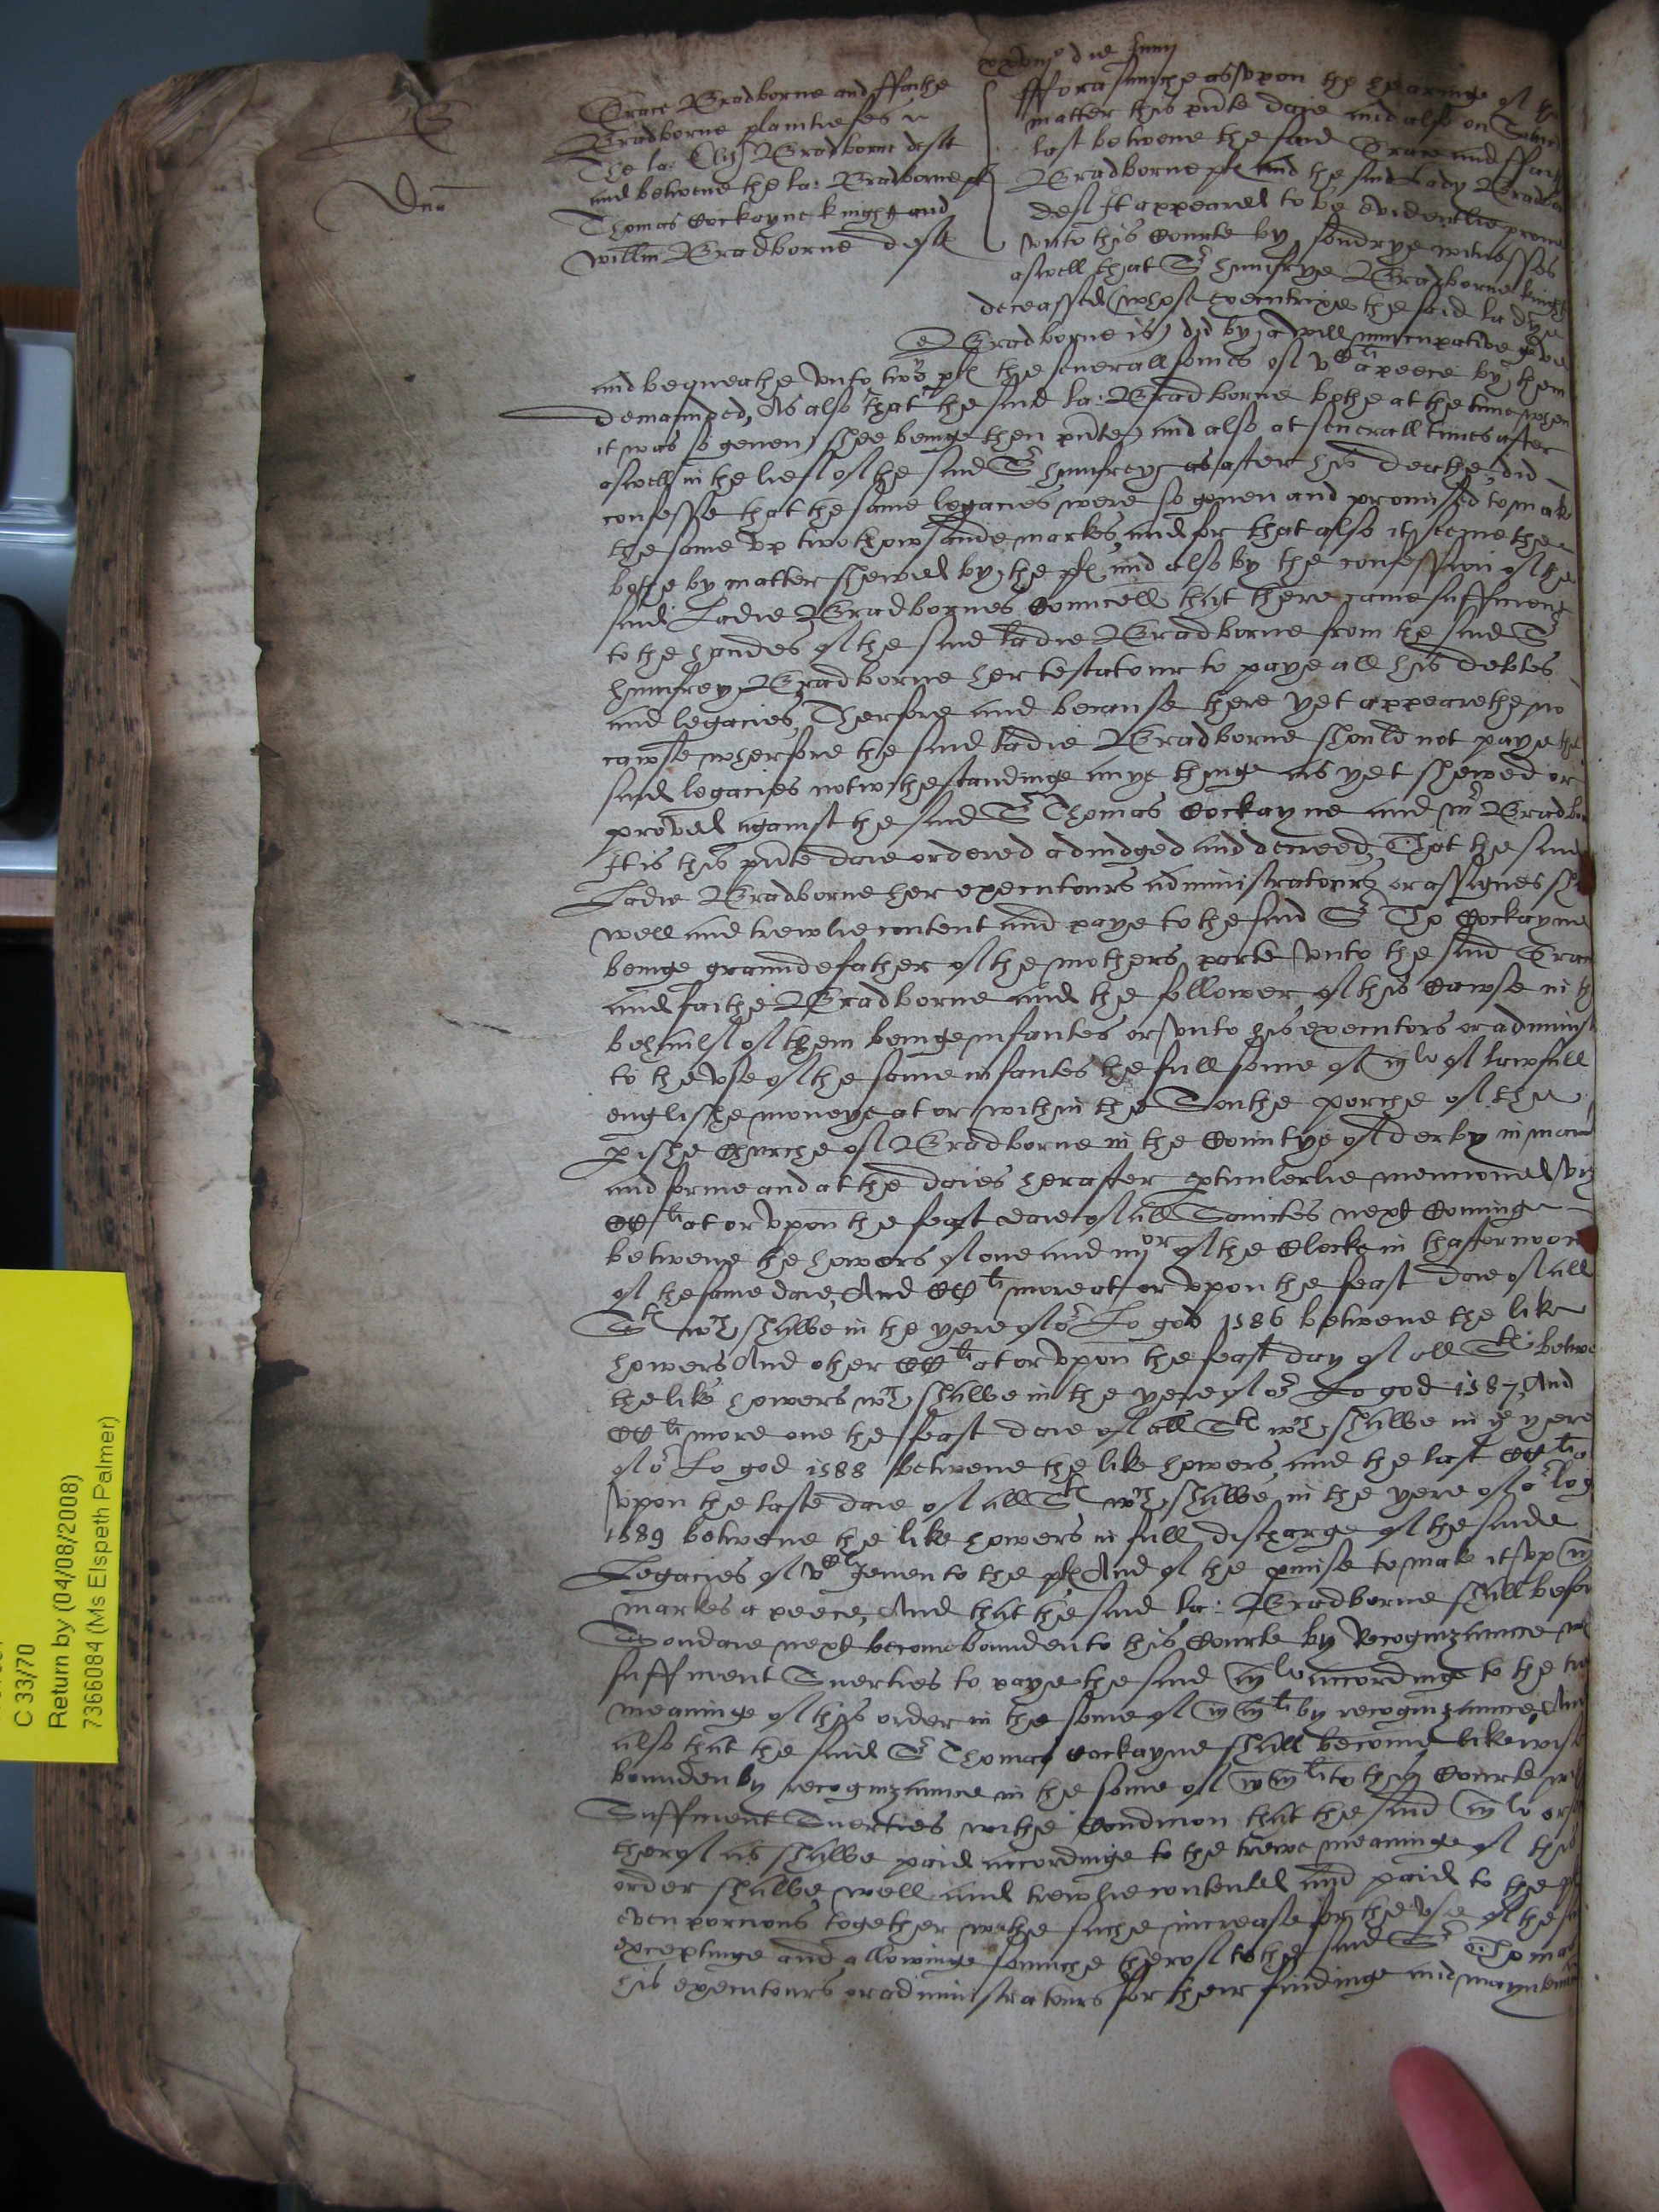 xxviijo die Junij
Grace Bradborne and ffaithe
Bradborne plaintiefes
The La: Eliz Bradborne deft
and betwene the La: Bradborne pl
Thomas Cockayne knight and
Willm Bradborne deft
fforasmuche as vpon the hearinge of the
matter this pnte daie and also on
last betwene the said Grace and ffaith
Bradborne pl and the said Lady Bradborne
def It appeared to be evidentlie proved
vnto this Courte by sondrye witnesses
aswell that Sr Humfrye Bradborne knight
deceassed (whose executrixe the said Ladye
Bradborne is) did by a will nuncupative geve
and bequeathe vnto two pl the severall somes of vC li a peece by them
demaunded, As also that the said La: Bradborne bothe at the time when
it was so geven shee beinge then pnte and also at severall times after
aswell in the lief of the said Sr Humfrey as after his deathe, did
confesse that the same legacies were so geven and promised to make
the same vp two thowsande markes, and for that also it seemethe
bothe by matter shewed by the pl and also by the confession of the
said Ladie Bradbornes Councell that there came sufficient
to the handes of the said Ladie Bradborne from the said Sr
Humfrey Bradborne her testatour to paye all his debtes
and legacies, Therfore and because there yet appearethe no
cawse wherfore the said Ladie Bradborne should not paye the
said legacies notwthestandinge anye thinge as yet shewed or
proved against the said Sr Thomas Cockayne and Mr Bradborne
It is this pnte daie ordered adiudged and decreed, That the said
Ladie Bradborne her executours administratours or assignes shall
well and trewlie content and paye to the said Sr Tho Cockayne
beinge graundefather of the mothers parte vnto the said Grace
and faithe Bradborne and the follower of this Cawse in the
behaulf of them beinge infantes or vnto his executors or administ
to the vse of the same infantes the full some of mli of lawfull
englishe moneye at or within the Southe porche of the
pishe Churche of Bradborne in the Countye of derby in maner
and forme and at the daies herafter pticulerlie mencioned viz
CC li at or vpon the feast daie of all Sainctes next Cominge
betwene the howers of one and iiijor of the Clocke in thafternoone
of the same daie, And CC li more at or vpon the feast daie of all
Sts wch shalbe in the yere of or Lo god 1586 betwene the like
howers And other CC li at or vpon the feast day of all Sts betwe
the like howers wch shalbe in the yere of or Lo god 1587, And
CC li more one the feast daie of all Sts wch shalbe in ye yere
of or Lo god 1588 betwene the like howers, and the last CC li
vpon the laste daie of all Sts wch shalbe in the yere of or Lo g
1589 betwene the like howers in full discharge of the saide
Legacies of vC li geven to the pl And of the pmise to make it vp m
markes a peece, And that the said La: Bradborne shall before
Sondaie next become bounden to this Courte by Recognizaunce wth
sufficient Suerties to paye the said mli accordinge to the trew
meaninge of this order in the some of li by recognizaunce And
also that the said Sr Thomas Cockayne shall become likewise
bounden by recognizaunce in the some of li to this Courte wth
Sufficient Suerties withe Condicion that the said mli or
therof as shalbe paid accordinge to the trewe meaninge of this
order shalbe well and trewlie contented and paid to the pl
even porcions together withe suche increase for the vse of the
exceptinge and allowinge somuche therof to the said Sr Thomas
his executours or administratours for their findinge and mayntenance
C 33/70
Return by (04/08/2008)
7366084 (Ms Elspeth Palmer)